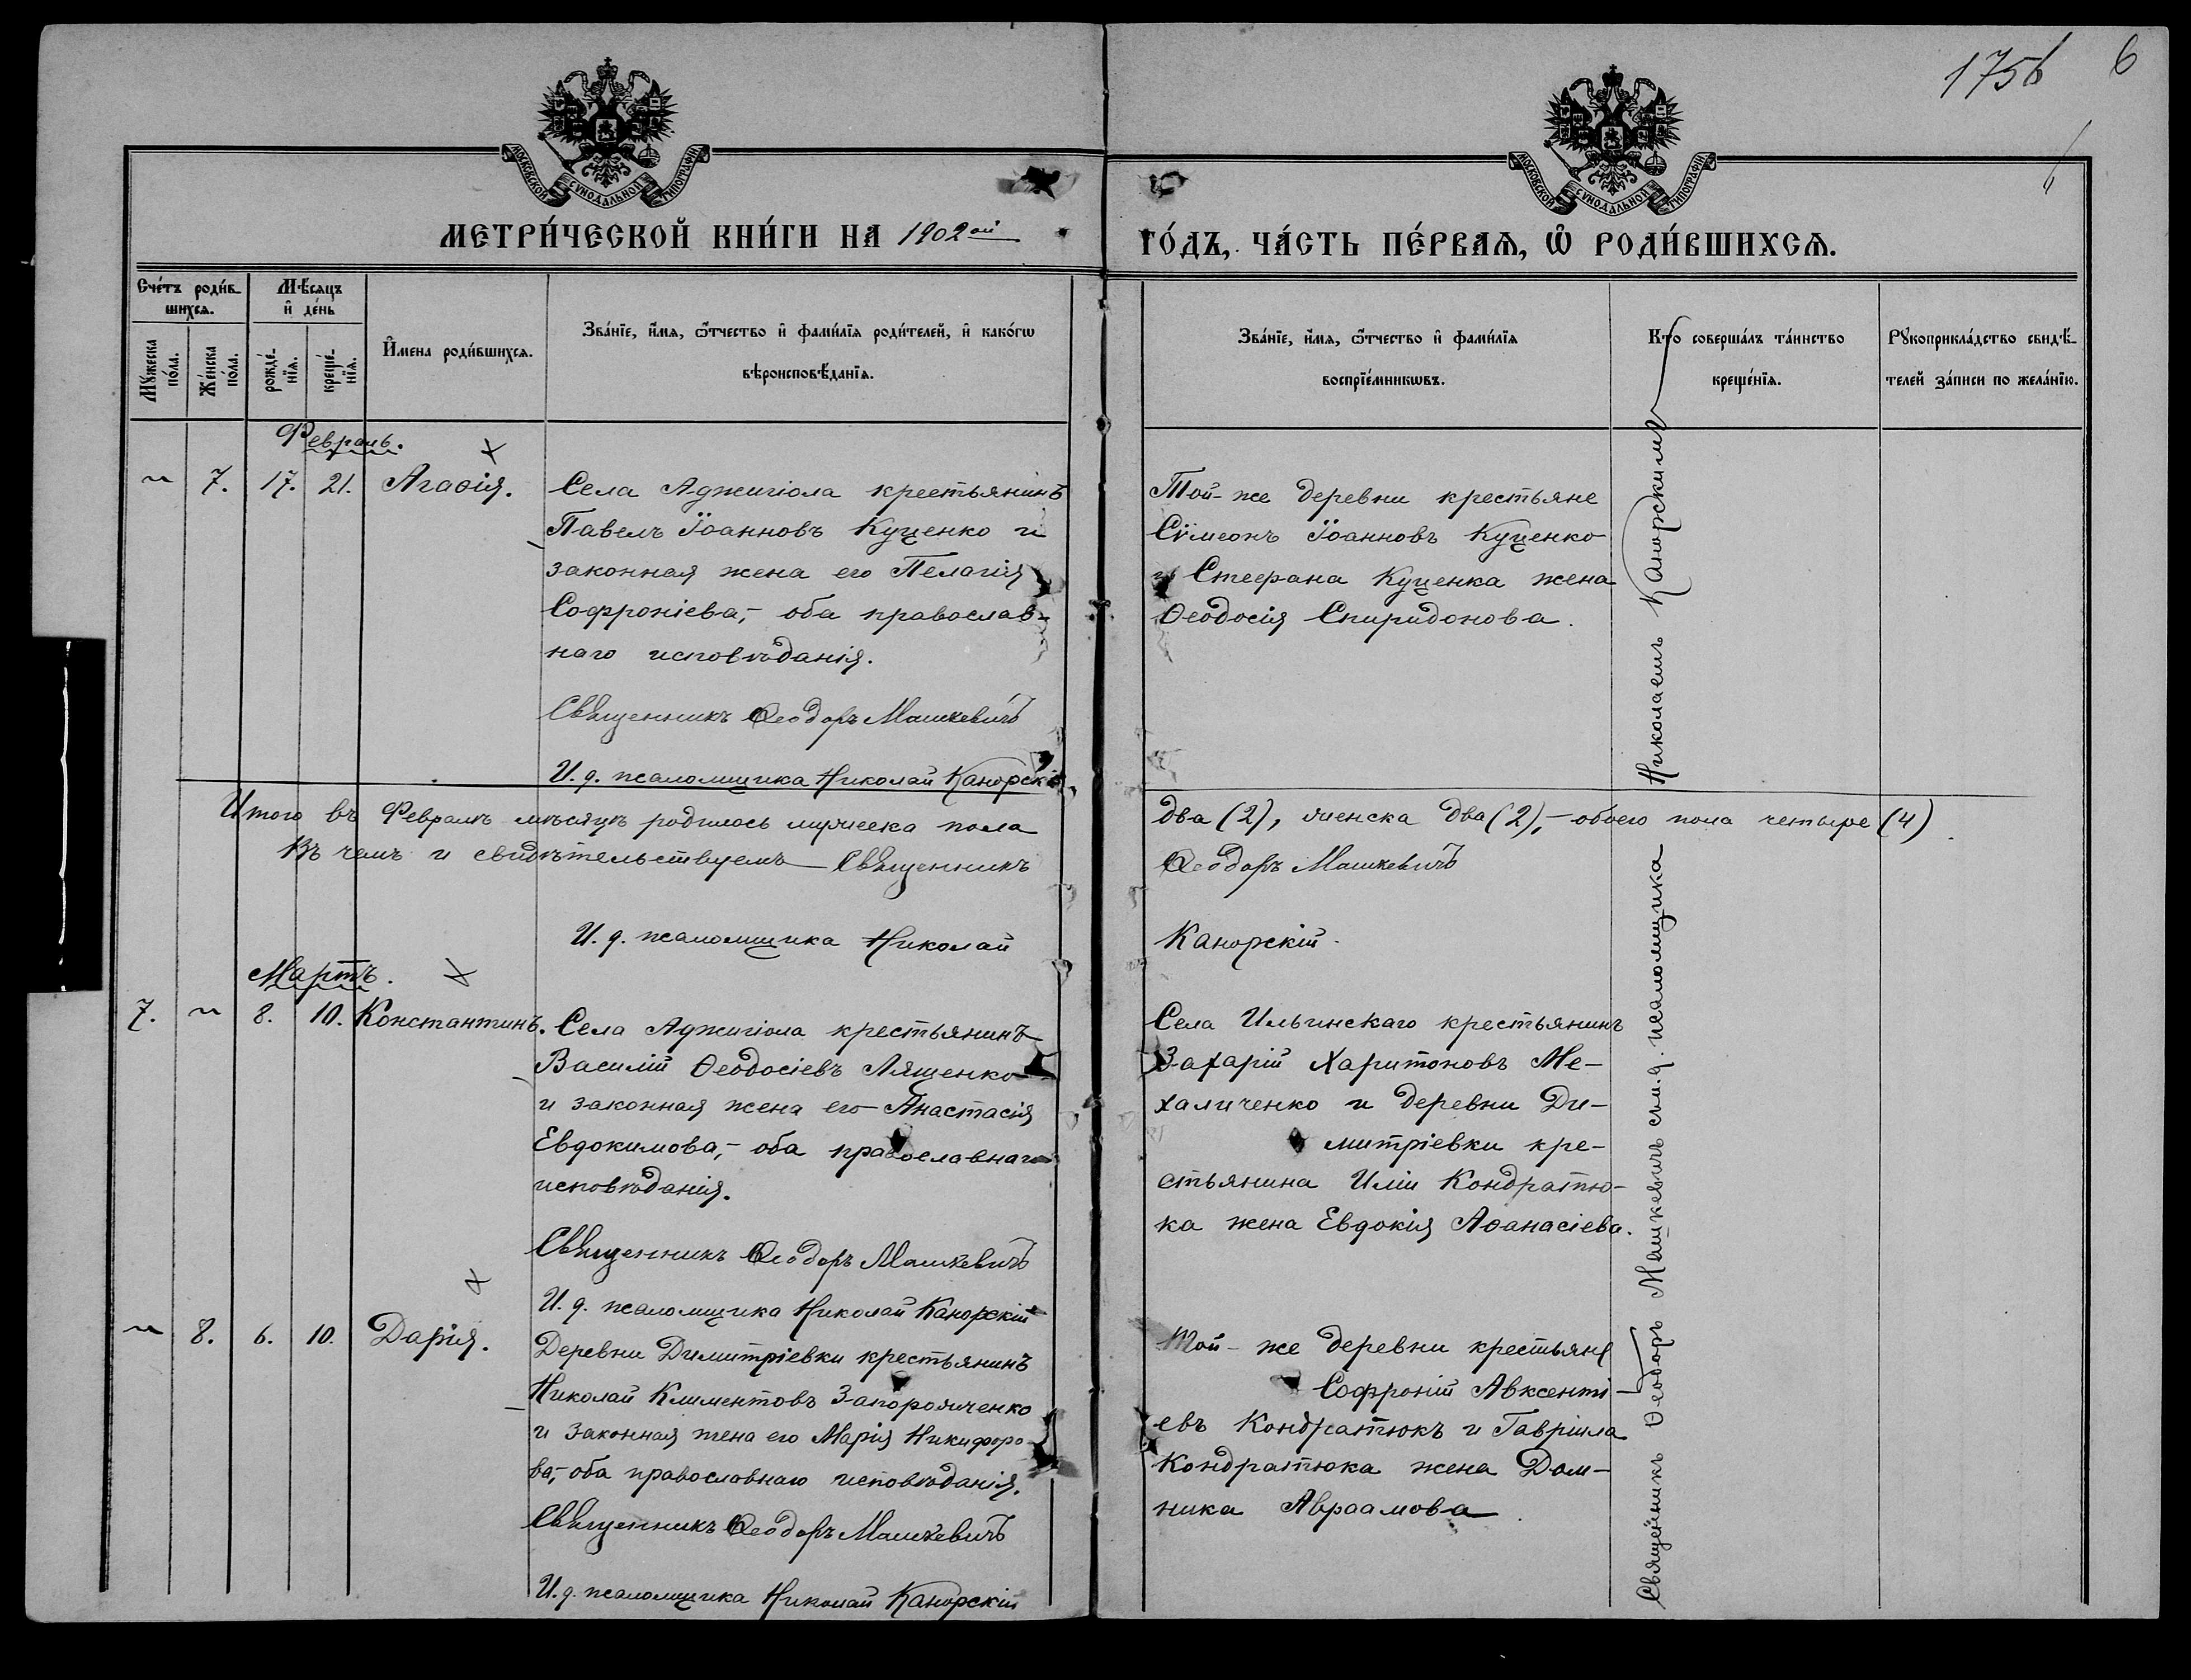 175 6
МОСКОВСКОЙ СѴНОДАЛЬНОЙ ТИПОГРАФІИ
МОСКОВСКОЙ СѴНОДАЛЬНОЙ ТИПОГРАФІИ
МЕТРИ́ЧЕСКОЙ КНИ́ГИ НА 1902ой
ГО́ДЪ, ЧА́СТЬ ПЕ́РВАѦ, Ѡ҆ РОДИ́ВШИХСѦ.
Сче́тъ роди́в-
шихсѧ.
Мꙋ́жеска
по́ла.
Же́нска
по́ла.
Мѣ́сѧцъ
и҆ де́нь
рожде́-
нїѧ.
креще́-
нїѧ.
И҆мена роди́вшихсѧ.
Зва́нїе, и҆́мѧ, ѻ҆́тчество и҆ фами́лїѧ роди́телей, и҆ како́гѡ
вѣроисповѣ́данїѧ.
Зва́нїе, и҆́мѧ, ѻ҆́тчество и҆ фами́лїѧ
воспрїе́мникѡвъ.
Кто соверша́лъ та́инство
креще́нїѧ.
Рꙋкоприкла́дство свидѣ́-
телей за́писи по жела́нїю.
Февраль.
~ 7. 17. 21. Агаѳія.
Села Аджигіола крестьянинъ
Павелъ Іоанновъ Куценко и
законная жена его Пелагія
Софроніева,- оба православ-
наго исповѣданія.
Священникъ Ѳеодоръ Машкевичъ
И. д. псаломщика Николай Канорскій
Той-же деревни крестьяне
Сѵмеонъ Іоанновъ Куценко
и Стефана Куценка жена
Ѳеодосія Спиридонова.
Итого въ Февралѣ мѣсяцѣ родилось мужеска пола
два (2), женска два (2),- обоего пола четыре (4)
Въ чемъ и свидѣтельствуемъ Священникъ
Ѳеодоръ Машкевичъ
И. д. псаломщика Николай
Канорскій.
Мартъ.
7. ~ 8. 10. Константинъ.
Села Аджигіола крестьянинъ
Василій Ѳеодосіевъ Лященко
и законная жена его Анастасія
Евдокимова,- оба православнаго
исповѣданія.
Священникъ Ѳеодоръ Машкевичъ
И. д. псаломщика Николай Канорскій
Села Ильинскаго крестьянинъ
Захарій Харитоновъ Ме-
халиченко и деревни Ди-
митріевки кре-
стьянина Иліи Кондратю-
ка жена Евдокія Аѳанасіева.
~ 8. 6. 10. Дарія.
Деревни Димитріевки крестьянинъ
Николай Климентовъ Запорожченко
и законная жена его Марія Никифоро-
ва,- оба православнаго исповѣданія.
Священникъ Ѳеодоръ Машкевичъ
И. д. псаломщика Николай Канорскій
Той-же деревни крестьяне
Софроній Авксенті-
евъ Кондратюкъ и Гавріила
Кондратюка жена Дом-
ника Авраамова
Священникъ Ѳеодоръ Машкевичъ съ и. д. псаломщика Николаемъ Канорскимъ